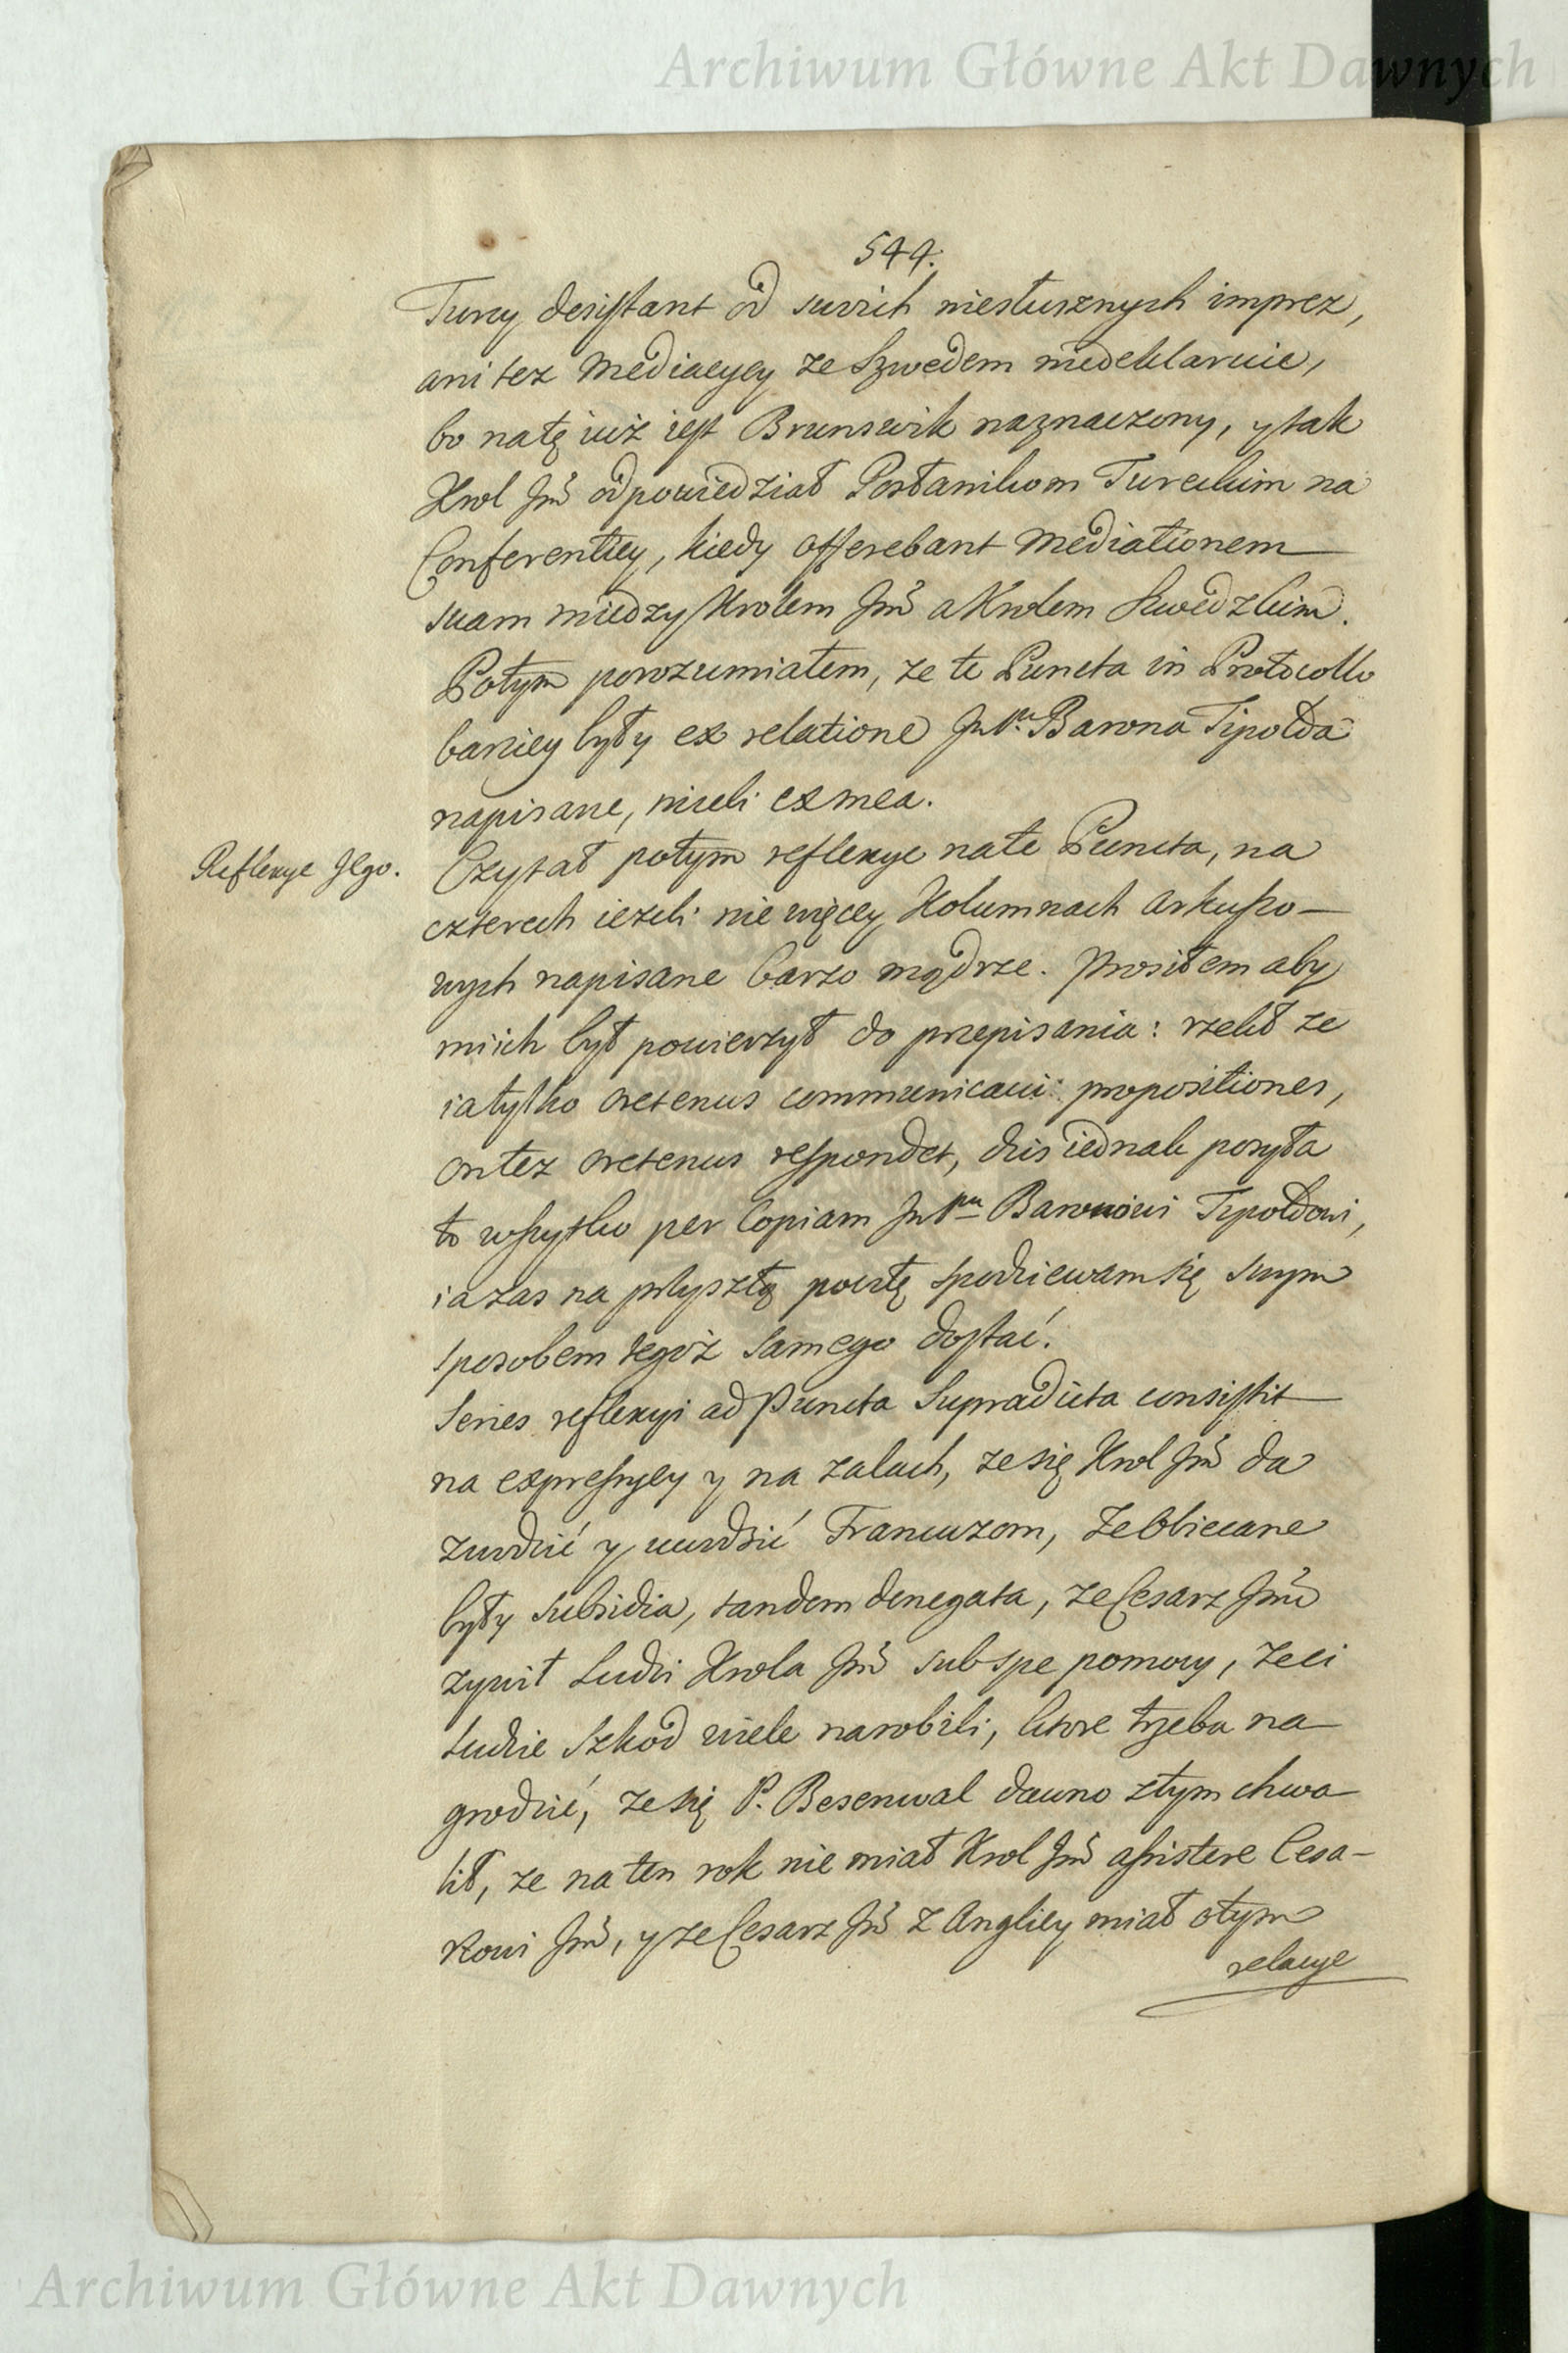 Archiwum Główne Akt Dawnych
544.
Turcy desistant od swoich niesłusznych imprez,
ani tez Mediacyey ze Szwedem niedeklaruie,
bo natę iuż iest Brunswik naznaczony, y tak
Krol Jmć odpowiedział Posłannikom Tureckim na
Conferentiey, kiedy offerebant Mediationem
suam miedzy Krolem Jmć a Krolem Szwedzkim.
Potym porozumiałem, ze te Puncta in Protocollo
barziey były ex relatione Barona Tipolda
napisane, nizeli ex mea.
Reflexye Jego.
Czytał potym reflexye nate Puncta, na
czterech iezeli nie więcey Kolumnach Arkuszo-
wych napisane barzo mądrze. Prosiłem aby
mi ich był powierzył do przepisania: rzekł ze
ia tylko oretenus communicaui propositiones,
on tez oretenus respondet, dzis iednak posyła
to wszytko per Copiam Baronowi Tipoldowi,
ia zas na przyszłą pocztę spodziewam się swym
sposobem tegoż samego dostać.
Series reflexyi ad Puncta Supradicta consistit
na expressyey y na zalach, ze się Krol Jmć da
zwodzić y uwodzić Francuzom, ze obiecane
były subsidia, tandem denegata, ze Cesarz Jmć
zywił Ludzi Krola Jmć sub spe pomocy, ze ci
Ludzie Szkod wiele narobili, ktore trzeba na-
grodzić, ze się P. Besenwal dawno z tym chwa-
lił, ze na ten rok nie miał Krol Jmć assistere Cesa-
rzowi Jmć, y ze Cesarz Jmć z Angliey miał o tym
relacye
Archiwum Główne Akt Dawnych